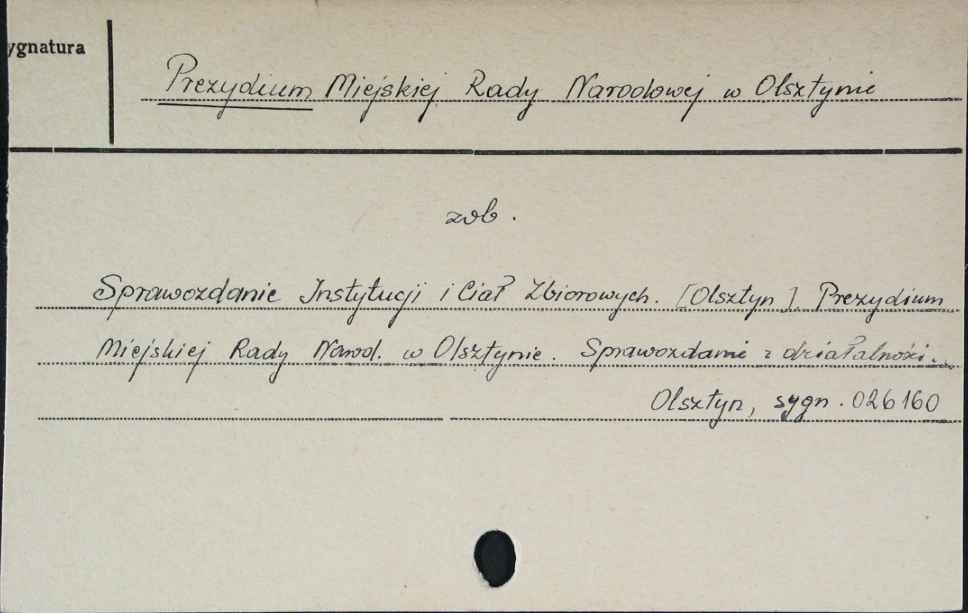 ygnatura
Prezydium Miejskiej Rady Narodowej w Olsztynie
zob.
Sprawozdanie Instytucji i Ciał Zbiorowych. [Olsztyn]. Prezydium
Miejskiej Rady Narod. w Olsztynie. Sprawozdanie z działalności.
Olsztyn, sygn. 026160